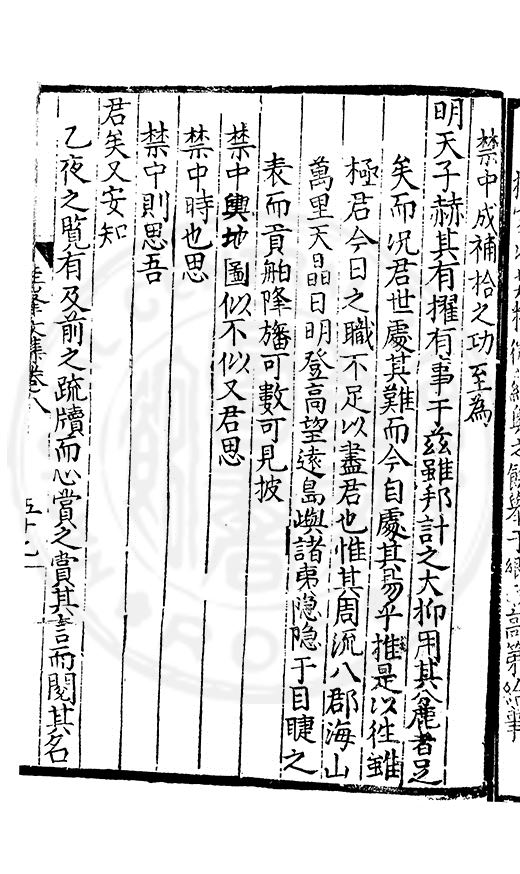 禁中成補拾之功至為
明天子赫其有擢有事于茲雖邦計之大抑用其麄者足
矣而况君世處其難而今自處其易乎推是以徃雖
極君今日之職不足以盡君也惟其周流八郡海山
萬里天晶日明登高望遠島嶼諸夷隱隱于目睫之
表而貢舶降旛可數可見披
禁中輿地圖似不似又君思
禁中時也思
禁中則思吾
君矣又安知
乙夜之覧有及前之疏牘而心賞之賞其言而閱其名
集卷八
五十七